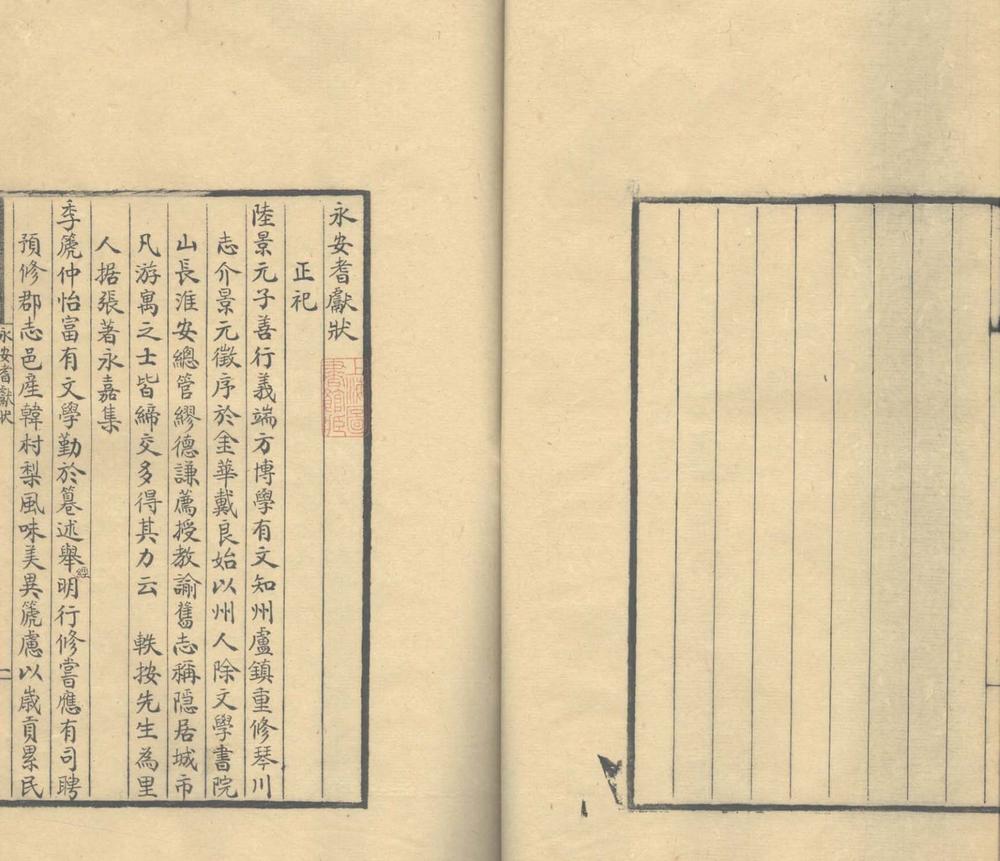 永安耆獻狀
正祀
陸景元子善行義端方博學有文知州盧鎮重修琴川
志介景元徵序於金華戴良始以州人除文學書院
山長淮安總管繆德謙薦授教諭舊志稱隱居城市
凡游寓之士皆締交多得其力云　軼按先生為里
人據張著永嘉集
季篪仲怡富有文學勤於篹述舉經明行修嘗應有司聘
預修郡志邑產韓村梨風味美異篪慮以歲貢累民
永安耆獻狀
一
上海圖書館藏